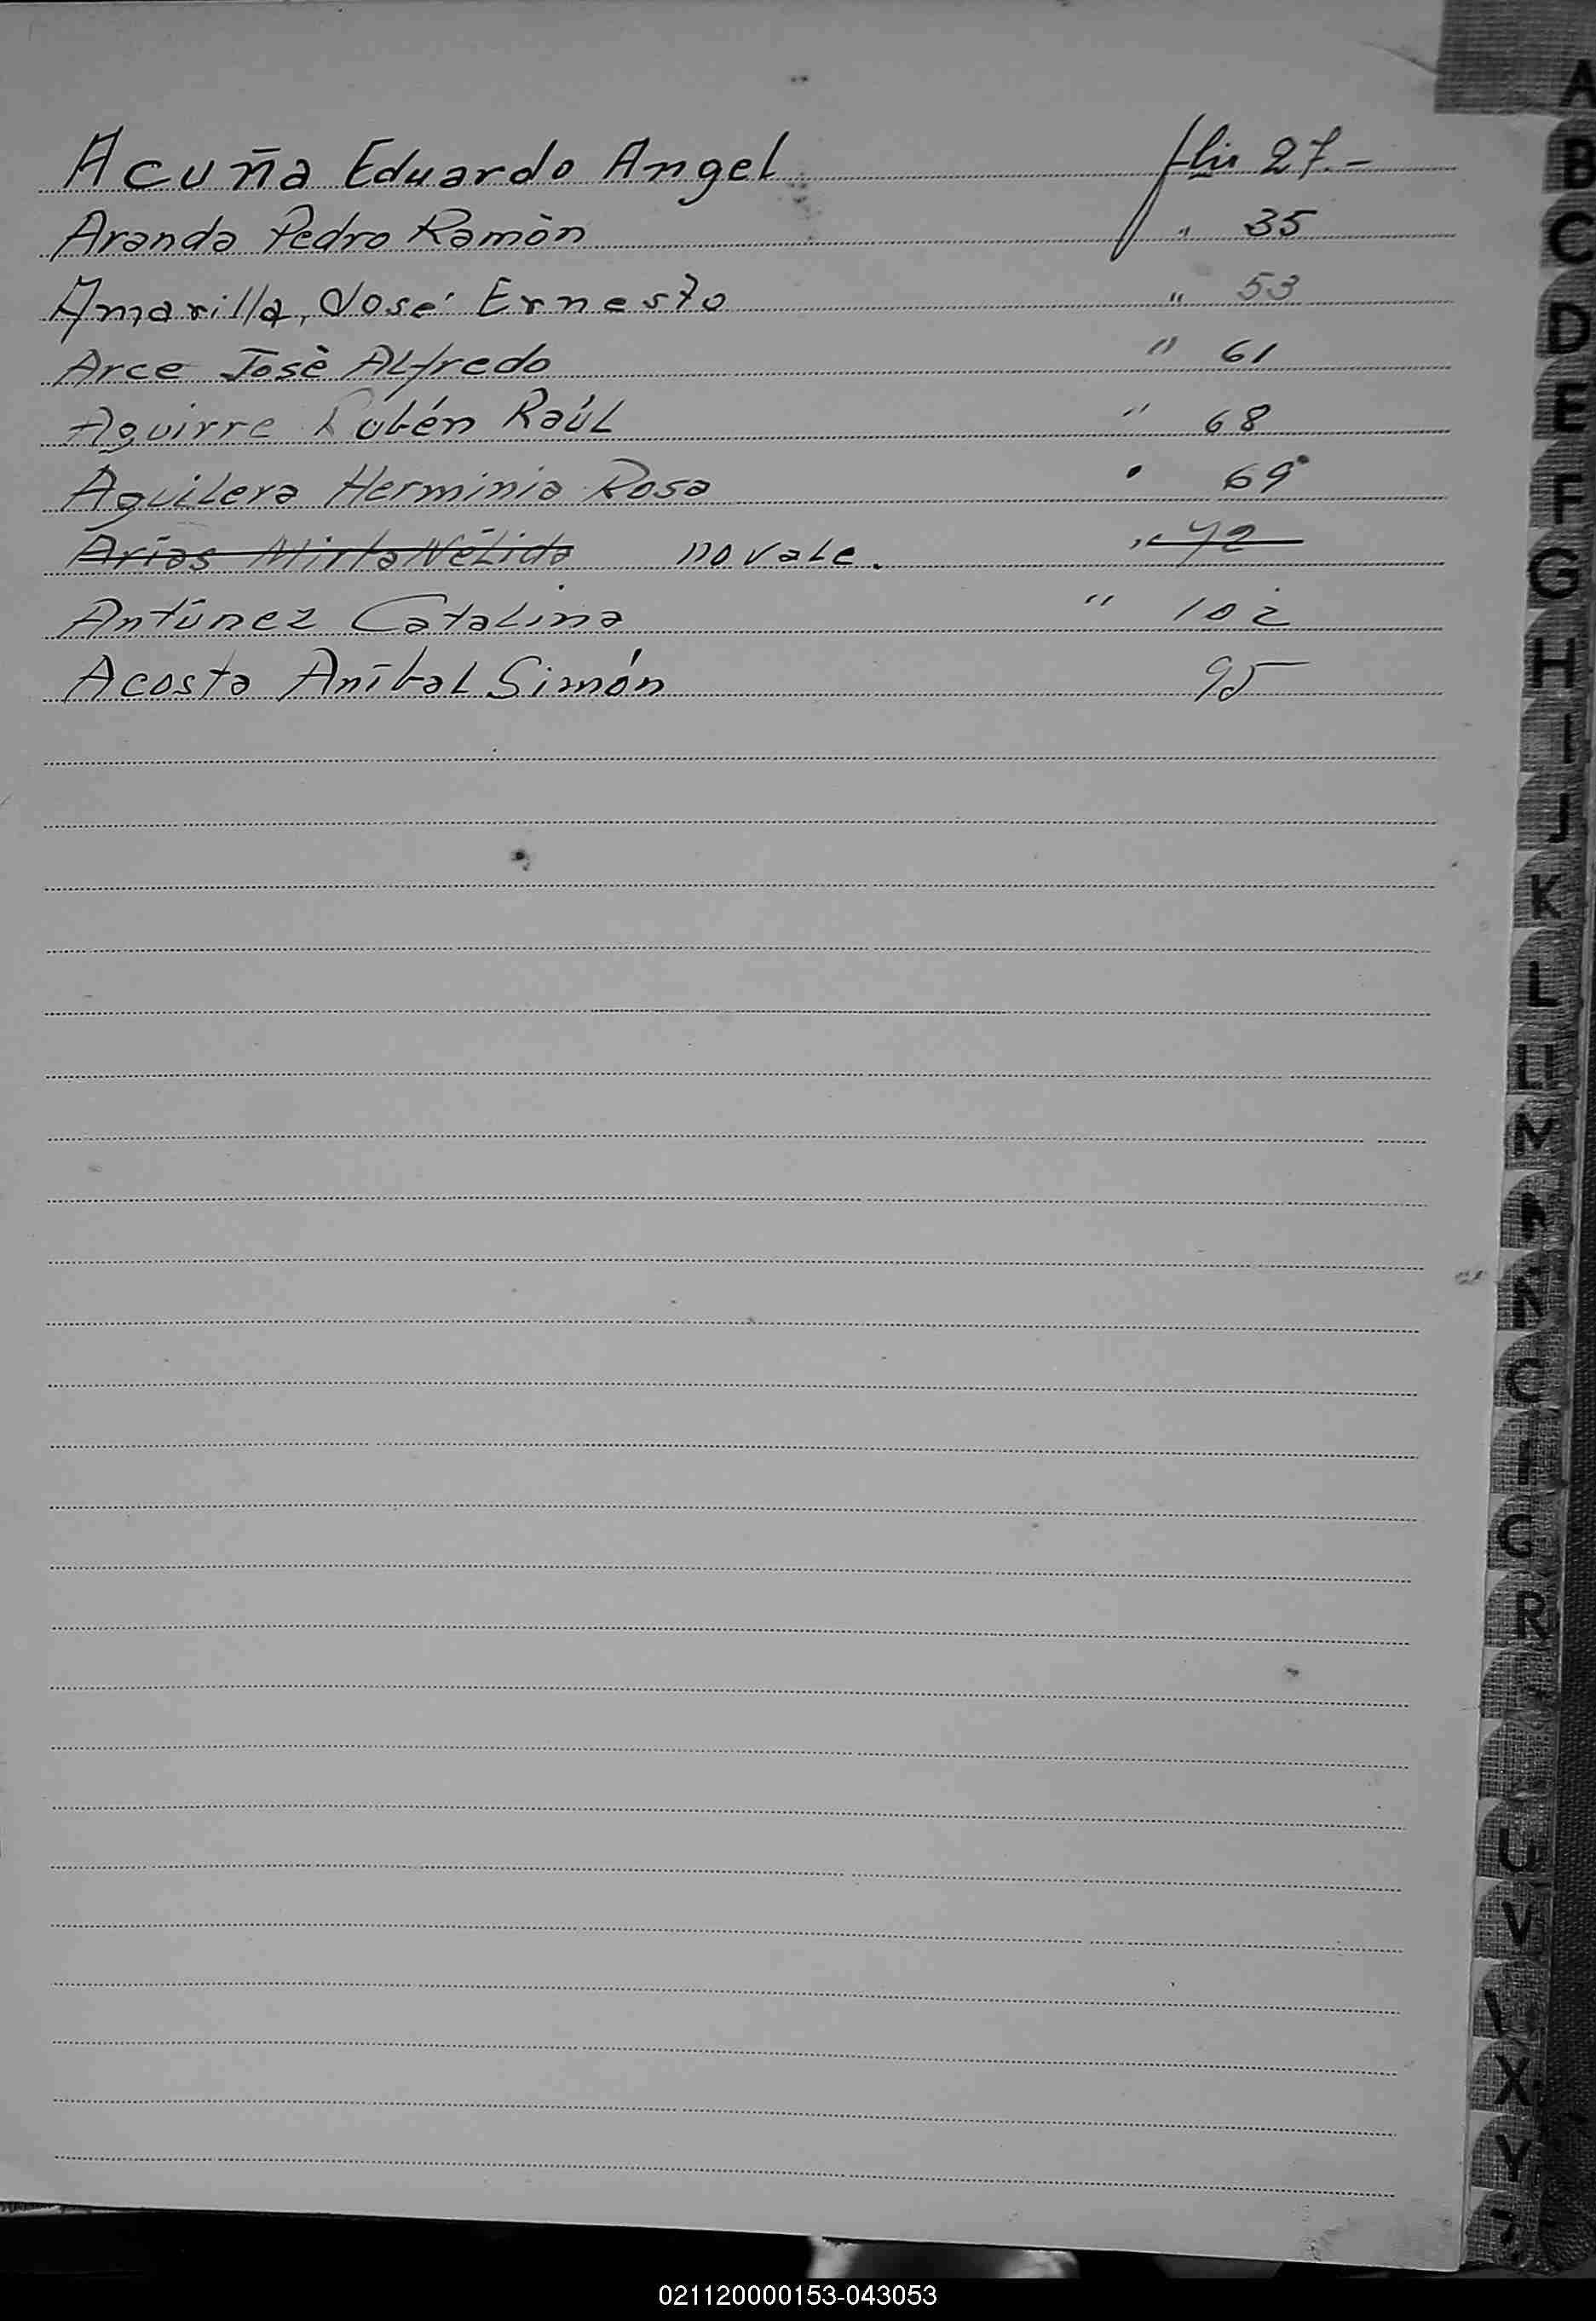 Acuña Eduardo Angel flio 27.-
Aranda Pedro Ramòn " 35
Amarilla, José Ernesto " 53
Arce Josè Alfredo " 61
Aguirre Rubén Raúl " 68
Aguilera Herminia Rosa " 69
Arias Mirta Nélida no vale. " 72
Antúnez Catalina " 102
Acosta Aníbal Simón 95
A
B
C
D
E
F
G
H
I
J
K
L
N
R
U
V
X
Y
021120000153-043053